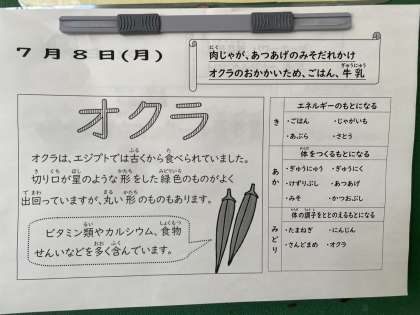 7月8日(月)
肉じゃが、あつあげのみそだれかけ
オクラのおかかいため、ごはん、牛乳
オクラ
オクラは、エジプトでは古くから食べられていました。
切り口が星のような形をした緑色のものがよく
出回っていますが、丸い形のものもあります。
ビタミン類やカルシウム、食物
せんいなどを多く含んでいます。
エネルギーのもとになる
き
・ごはん ・じゃがいも
・あぶら ・さとう
体をつくるもとになる
あか
・ぎゅうにゅう ・ぎゅうにく
・けずりぶし ・あつあげ
・みそ ・かつおぶし
体の調子をととのえるもとになる
みどり
・たまねぎ ・にんじん
・さんどまめ ・オクラ